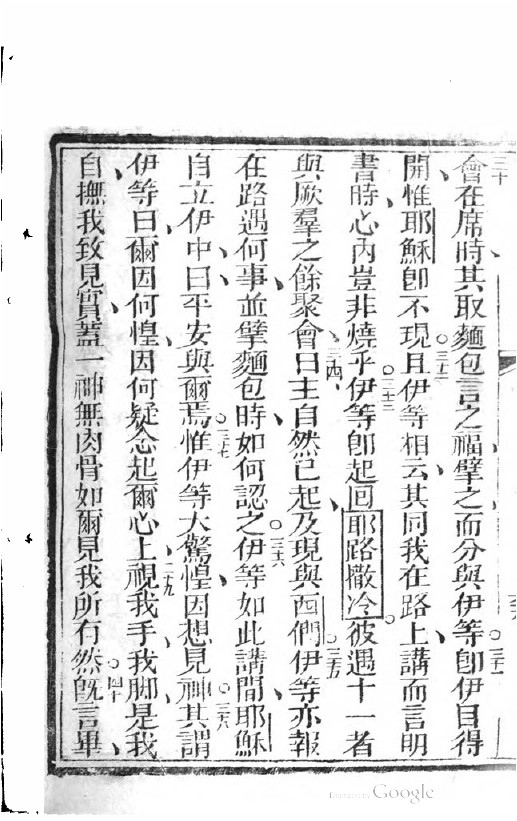 三十
會在席時其取麵包言之福擘之而分與伊等○三十一卽伊目得
開惟耶穌卽不現○三十二且伊等相云其同我在路上講而言明
書時心內豈非燒乎○三十三伊等卽起回耶路撒冷彼遇十一者
與厥羣之餘聚會○三十四曰主自然已起及現與西們○三十五伊等亦報
在路遇何事並擘麵包時如何認之○三十六伊等如此講間耶穌
自立伊中曰平安與爾焉○三十七惟伊等大驚惶因想見神○三十八其謂
伊等曰爾因何惶因何疑念起爾心上○三十九視我手我脚是我
自撫我致見實蓋一神無肉骨如爾見我所有然○四十旣言畢
Google